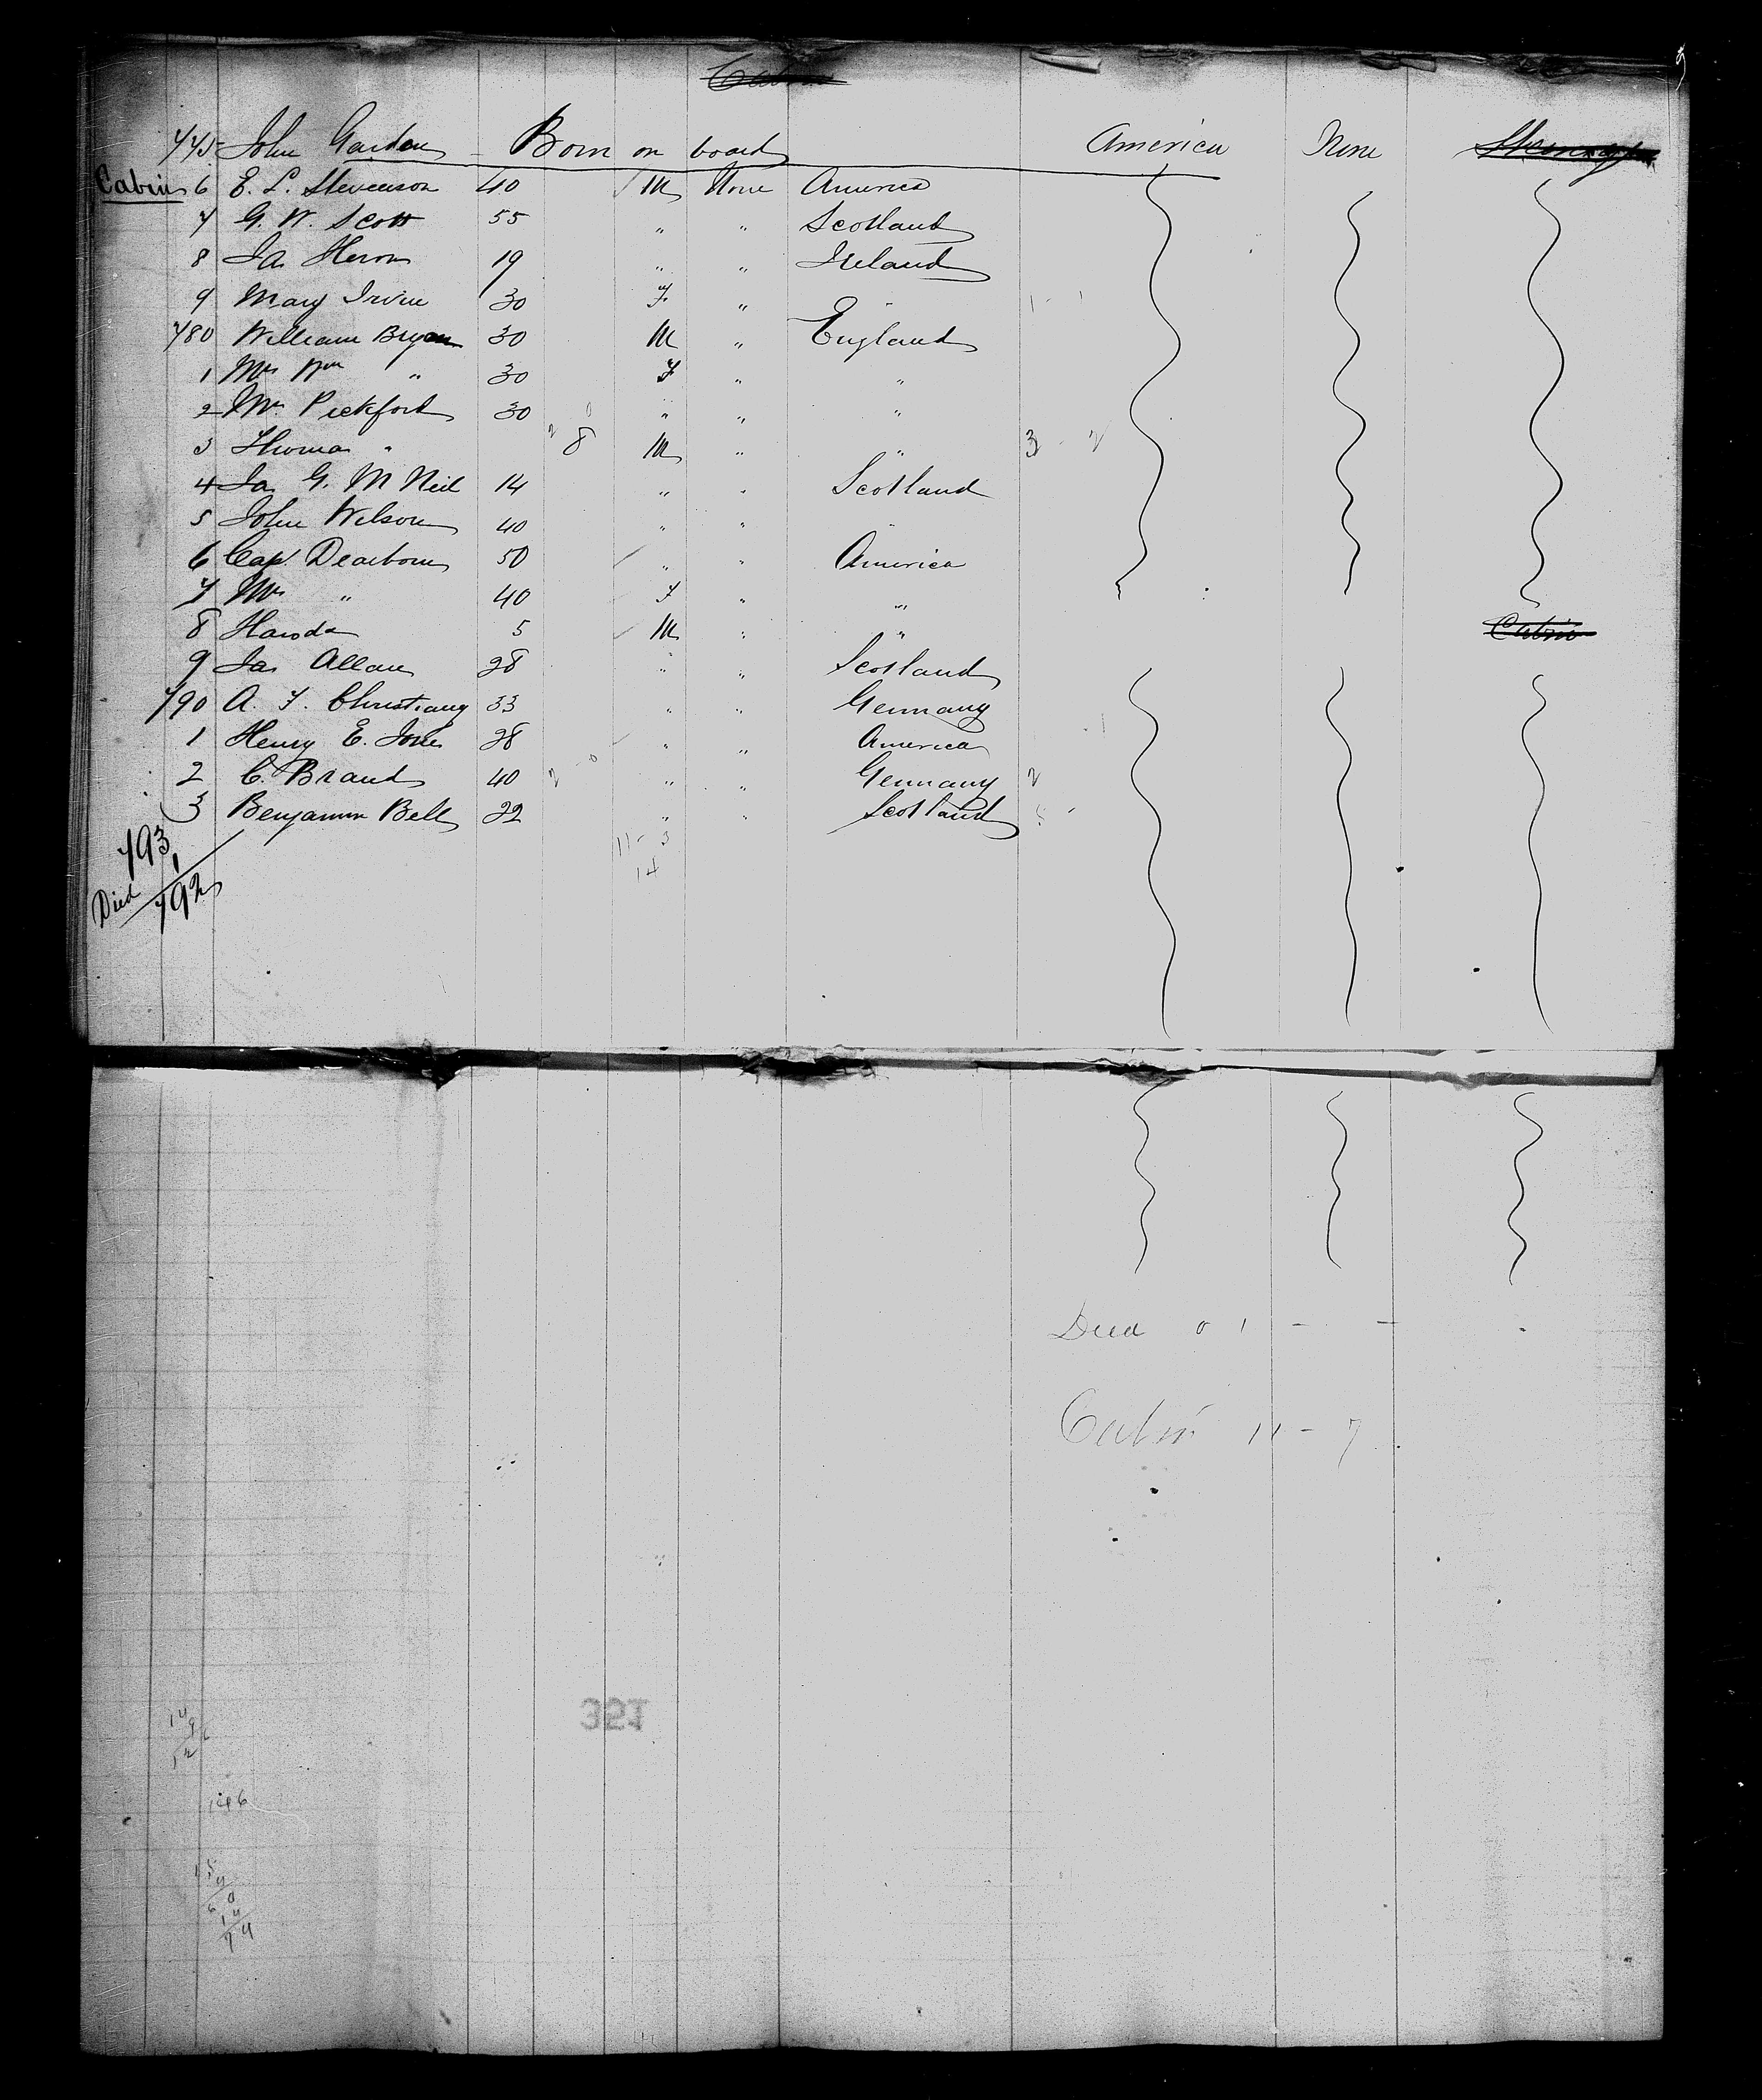 Cabin
775 John Garden Born on board America None Steerage
Cabin 6 E. L. Stevenson 40 M None America
7 G. W. Scott 55 " " Scotland
8 Ja Heron 19 " " Ireland
9 Mary Irvine 30 F " "
780 William Bryan 30 M " England
1 Mrs Wm " 30 F " "
2 Mrs Pickford 30 " " "
3 Thomas " 8 M " " 3 - 2
4 Ja G. McNeil 14 " " Scotland
5 John Wilson 40 " " "
6 Cap. Dearborn 50 " " America
7 Mrs " 40 F " "
8 5 M " " Cabin
9 Jas Allan 28 " " Scotland
790 A. F. Christiany 33 " " Germany
1 Henry E. Jones 28 " " America
2 C. Brand 40 " " Germany 2
3 Benjamin Bell 22 " " Scotland
11 - 3
14
793
Died 1
792
Died 0 1 - -
Cabin 11 - 7
351
146